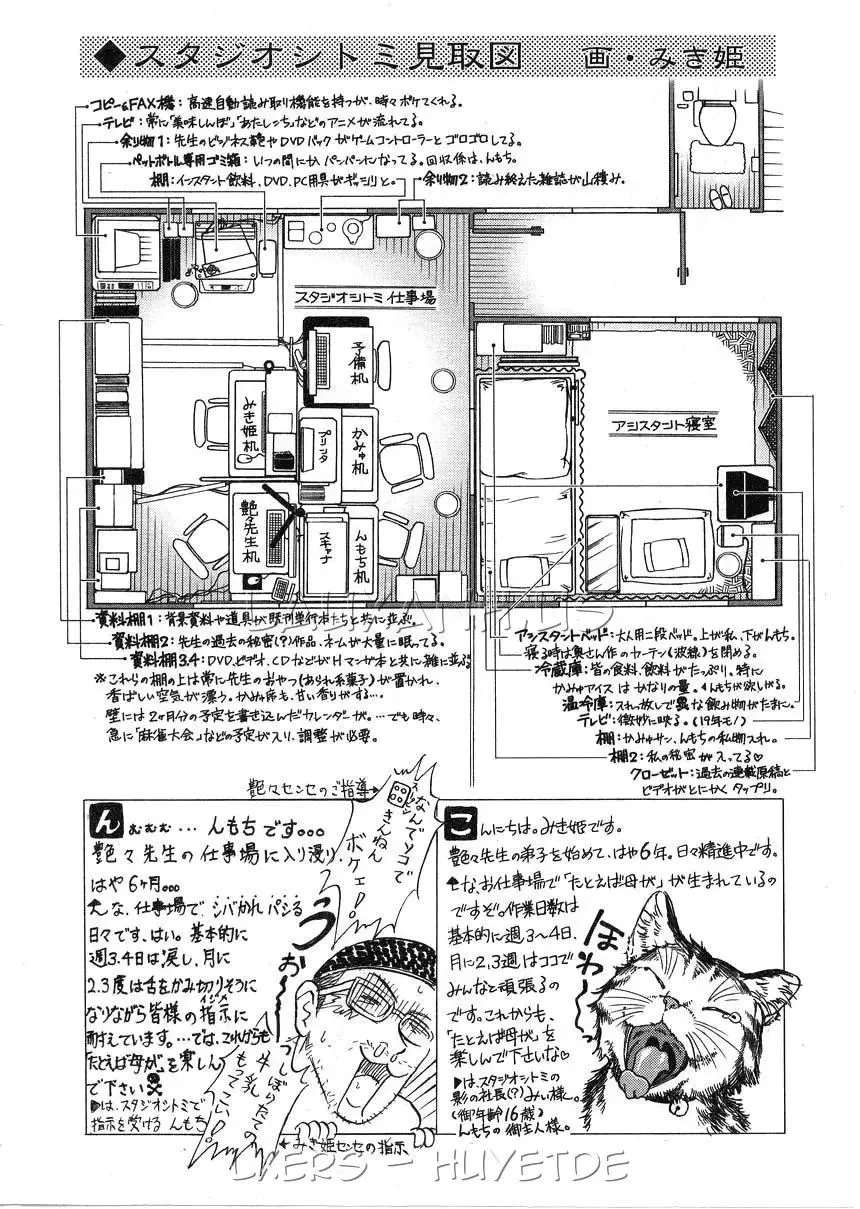 ◆スタジオシトミ見取図　画・みき姫
コピー&FAX機：高速自動読み取り機能を持つが、時々ボケてくれる。
テレビ：常に「美味しんぼ」「あたしンち」などのアニメが流れてる。
余り物1：先生のビジネス鞄やDVDパックがゲームコントローラーとゴロゴロしてる。
ペットボトル専用ゴミ箱：いつの間にかパンパンになってる。回収係は、んもち。
棚：インスタント飲料、DVD、PC用具がギッシリと。
余り物2：読み終えた雑誌が山積み。
スタジオシトミ仕事場
予備机
みき姫机
プリンタ
かみゅ机
艶々先生机
スキャナ
んもち机
アシスタント寝室
資料棚1：背景資料や道具が既刊単行本たちと共に並ぶ。
資料棚2：先生の過去の秘密(?)作品、ネームが大量に眠ってる。
資料棚3.4：DVD、ビデオ、CDなどがHマンガ本と共に雑に並ぶ
※これらの棚の上は常に先生のおやつ(あられ系菓子)が置かれ、
香ばしい空気が漂う。かみゅ席も、甘い香りがする…。
壁には2ヶ月分の予定を書き込んだカレンダーが。…でも時々、
急に「麻雀大会」などの予定が入り、調整が必要。
アシスタントベッド：大人用二段ベッド。上が私、下がんもち。
寝る時は奥さん作のカーテン(波線)を閉める。
冷蔵庫：皆の食料、飲料がたっぷり。特に
かみゅアイスはかなりの量。んもちが欲しがる。
温冷庫：入れっ放しで異な飲み物がたまに。
テレビ：微妙に映る。(19年モノ)
棚：かみゅサン、んもちの私物入れ。
棚2：私の秘密が入ってる♡
クローゼット：過去の連載原稿と
ビデオがとにかくタップリ。
艶々センセのご指導
なんでソコで
きんねん
ボケェ!
んむむむ…んもちです。。。
艶々先生の仕事場に入り浸り、
はや6ヶ月。。。
そんな、仕事場でシバかれパシる
日々です、はい。基本的に
週3.4日は涙し、月に
2.3度は舌をかみ切りそうに
なりながら皆様の指示に
イジメ
耐えています。…では、これからも
「たとえば母が」を楽しんで
下さい
▶は、スタジオシトミで
指示を受ける んもち
うおー
しぼりたての
牛乳
もってこい!
←みき姫センセの指示
こんにちは。みき姫です。
艶々先生の弟子を始めて、はや6年。日々精進中です。
そんな、お仕事場で「たとえば母が」が生まれているの
ですぞ。作業日数は
基本的に週3〜4日、
月に2,3週はココで
みんなと頑張るの
です。これからも、
「たとえば母が」を
楽しんで下さいな♡
▶は、スタジオシトミの
影の社長(?)みい様。
(御年齢16歳)
んもちの御主人様。
ほわ〜〜っ
LXERS - HUVETDE